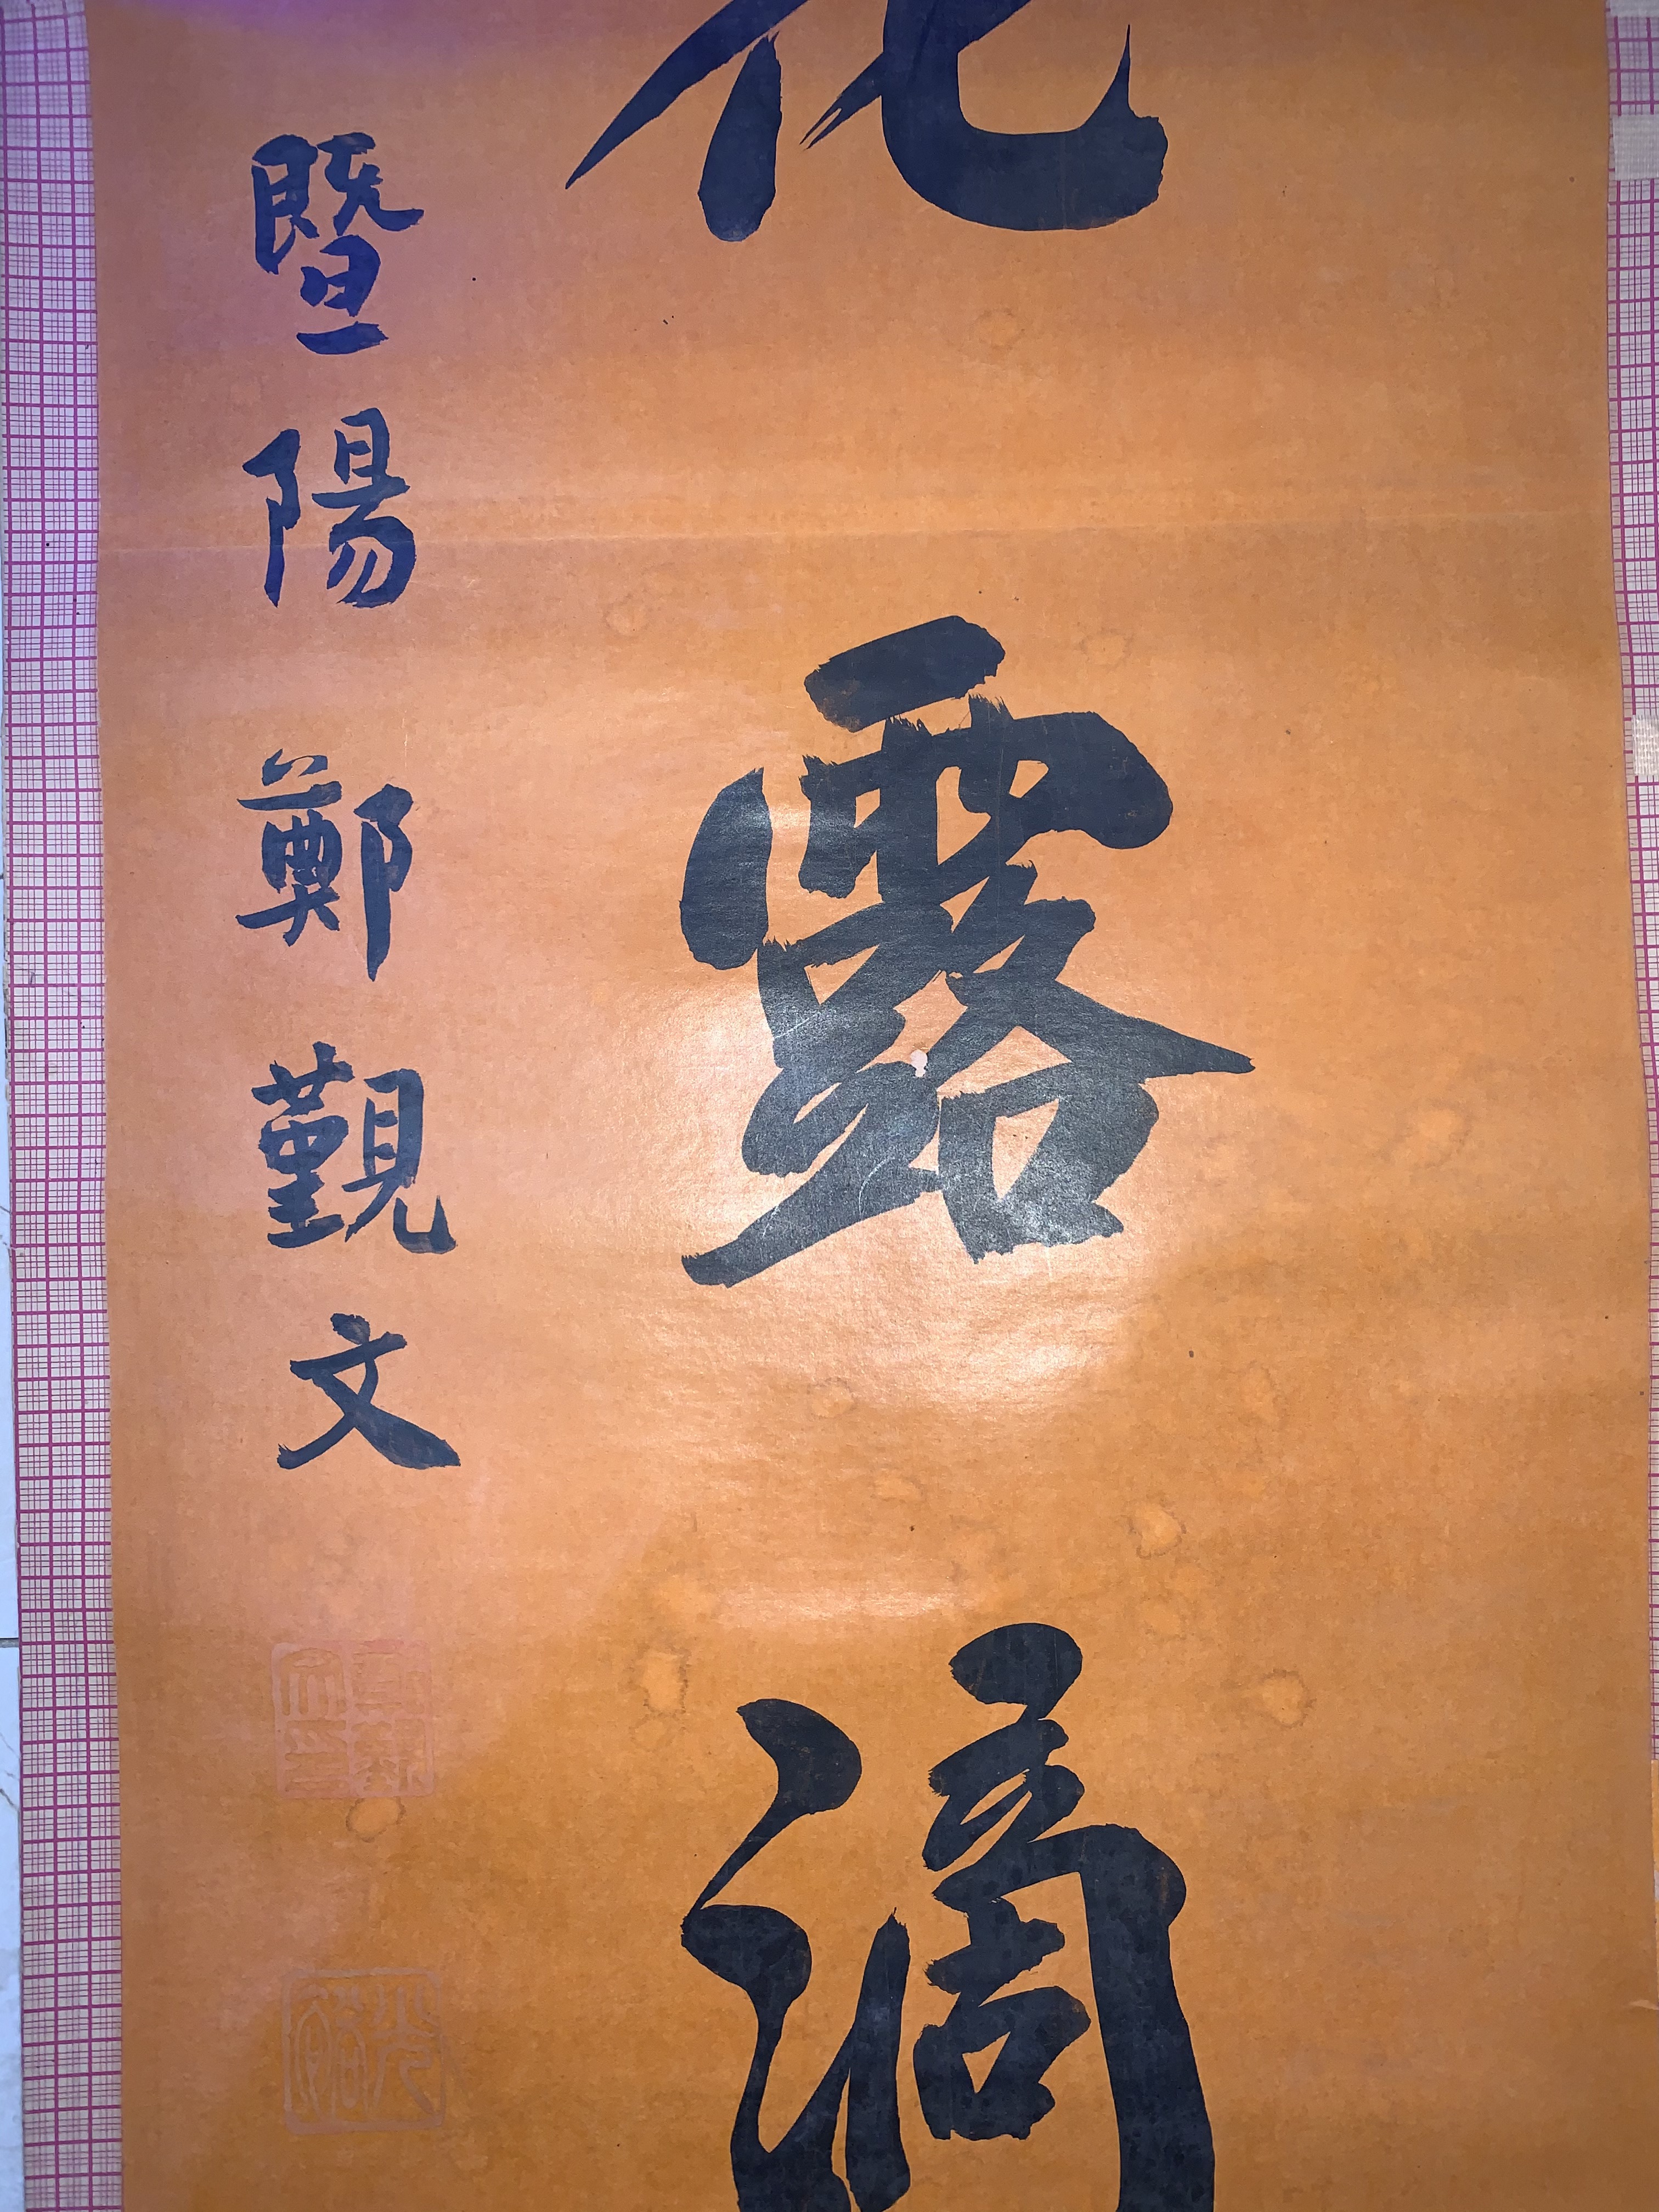 花露滴
暨陽鄭覲文